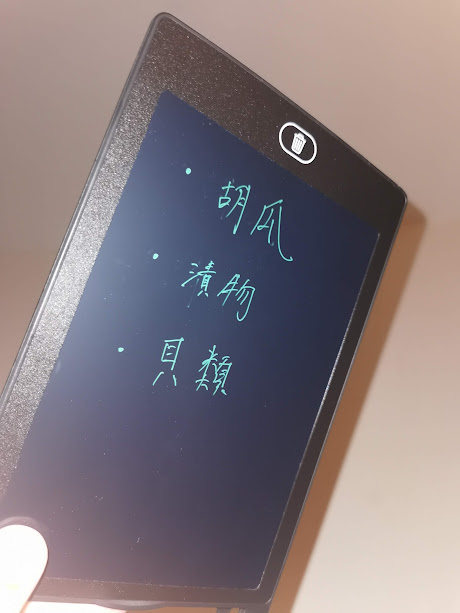 ・胡瓜
・漬物
・貝類